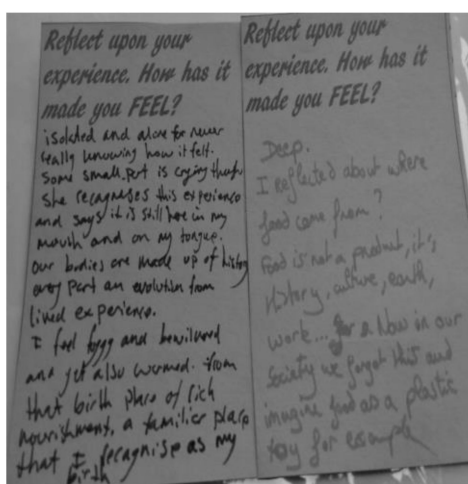 Reflect upon your
experience. How has it
made you FEEL?
isolated and alone for never
really knowing how it felt.
Some small part is crying though
She recognises this experience
and says it is still here in my
mouth and on my tongue.
Our bodies are made up of history
every part an evolution from
lived experience.
I feel foggy and bewildered
and yet also warmed. from
that birth place of rich
nourishment, a familiar place
that I recognise as my
birth
Reflect upon your
experience. How has it
made you FEEL?
Deep.
I reflected about where
food come from?
Food is not a product, it's
History, culture, earth,
work... for a Now in our
Society we forgot this and
imagine food as a plastic
toy for example